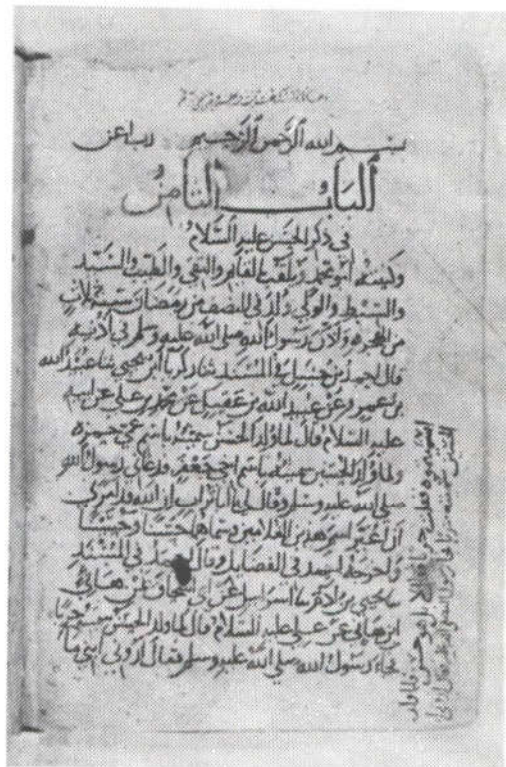 بسم الله الرحمن الرحيم رب اعن
الباب الثامن
في ذكر الحسن عليه السلام
وكنيته ابو محمد ويلقب بالقايم والتقي والطيب والسيد
والسبط والولي ولد في النصف من رمضان سنة ثلاث
من الهجرة واذن رسول الله صلى الله عليه وسلم في اذنيه
قال احمد بن حنبل في المسند ثنا زكريا ابن يحيى ثنا عبد الله
بن عمير وعن عبد الله بن عقيل عن محمد بن علي عن ابيه
عليه السلام قال لما ولد الحسن سميته باسم عمي حمزة
ولما ولد الحسين سميته باسم اخي جعفر فدعاني رسول الله
صلى الله عليه وسلم وقال لي يا ابا تراب ان الله قد امرني
ان اغير اسم هذين الغلامين وسماهما حسنا وحسينا
واخرجه احمد في الفضايل وقال احمد في المسند
ثنا يحيى بن ادم ثنا اسرايل عن ابي اسحاق عن هاني
ابن هاني عن علي عليه السلام قال لما ولد الحسن سميته حربا
فجاء رسول الله صلى الله عليه وسلم فقال اروني ابني ما
سميتموه فقلت حربا قال بل هو حسن فلما ولد
الحسين سميته حربا فجاء رسول الله